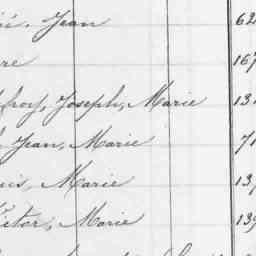 Jean 62
re 167
froy, Joseph, Marie 13
Jean, Marie 71
is, Marie 13
ictor, Marie 139